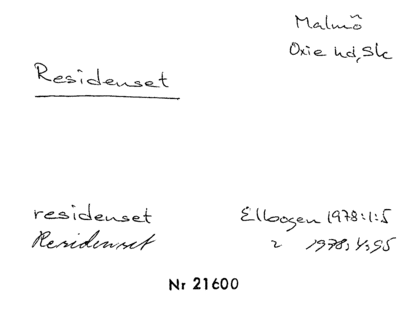 Malmö
Oxie hd, Sk
Residenset
residenset Elbogen 1978:1:5
Residenset " 1978:1:95
Nr 21600